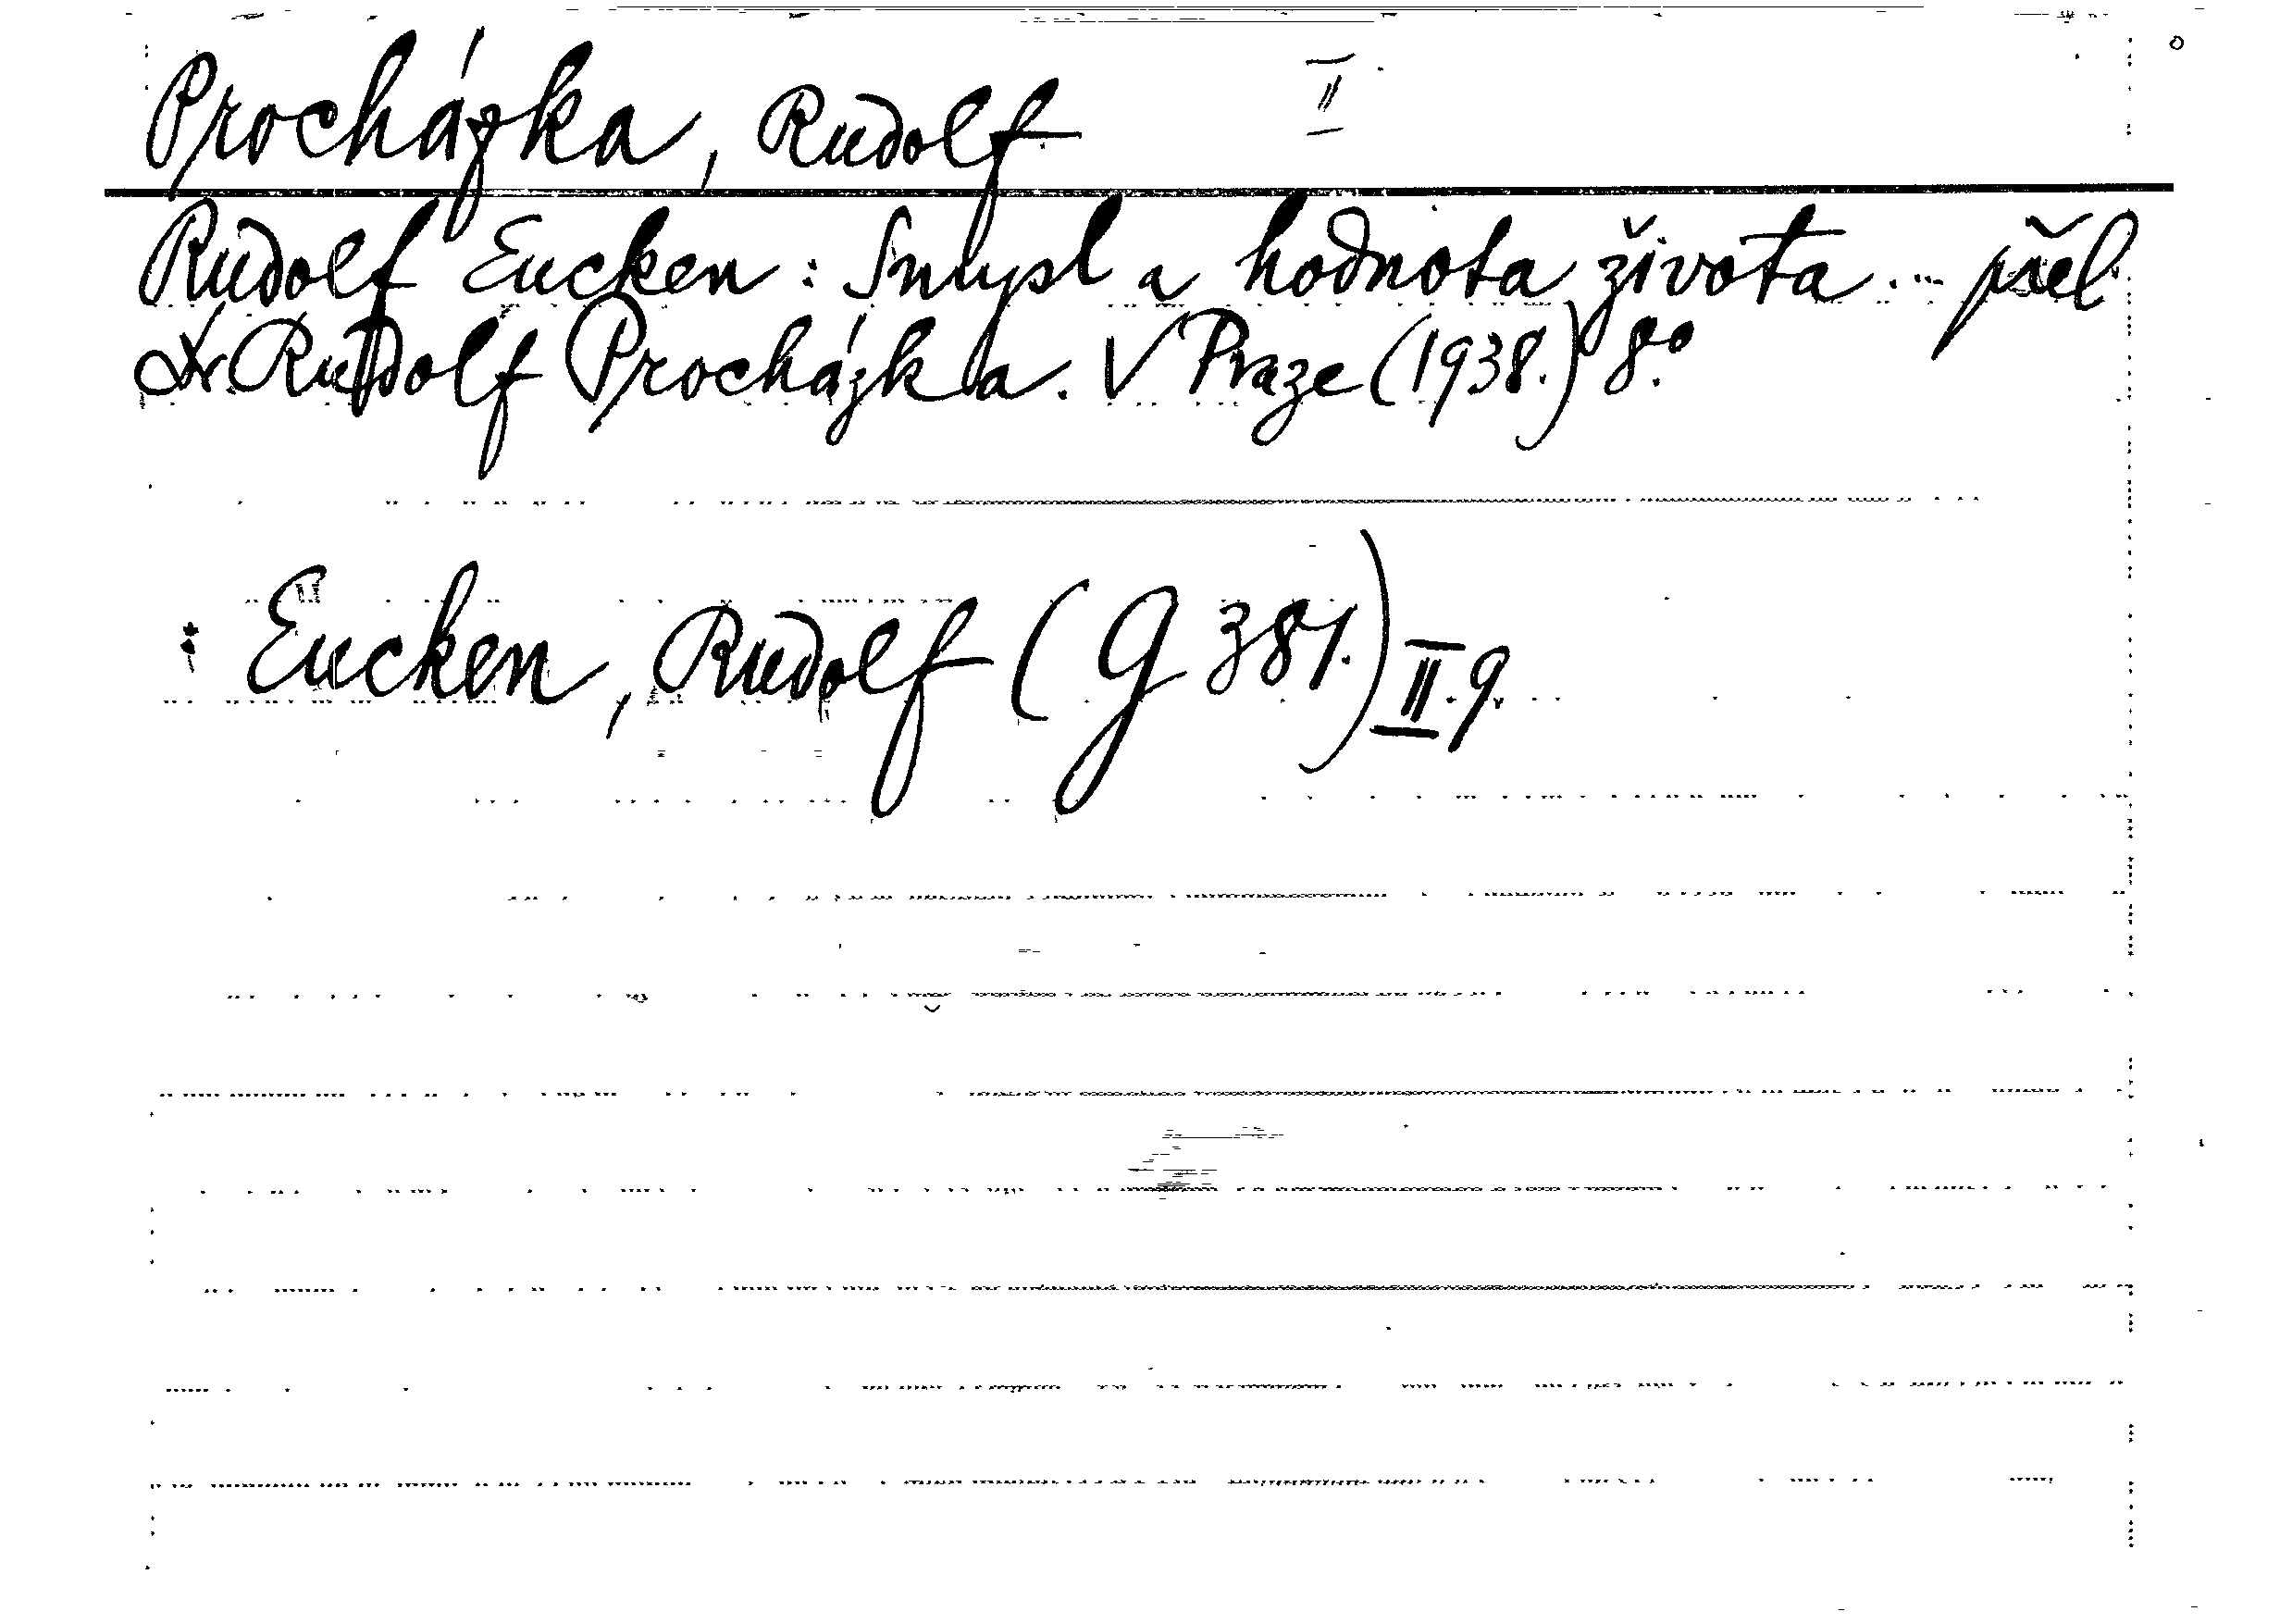 Procházka, Rudolf II
Rudolf Eucken : Smysl a hodnota života ... přel.
Dr. Rudolf Procházka. V Praze (1938.) 8°.
: Eucken, Rudolf (G 381.) II. 9.